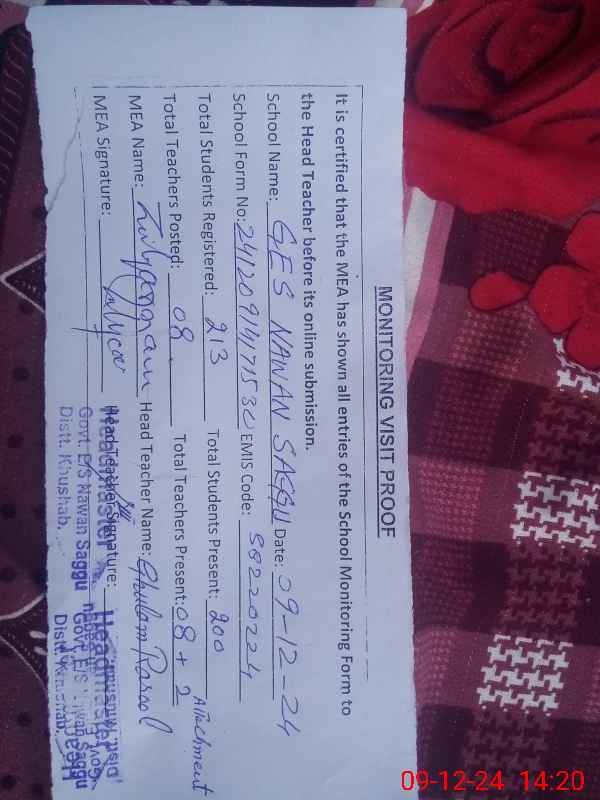 MONITORING VISIT PROOF
It is certified that the MEA has shown all entries of the School Monitoring Form to
the Head Teacher before its online submission.
School Name: GES NAWAN SAGGU Date: 09-12-24
School Form No: 2412091471530 EMIS Code: 38220224
Total Students Registered: 213 Total Students Present: 200
Total Teachers Posted: 08 Total Teachers Present: 08 + 2 Attachment
MEA Name: Head Teacher Name: Ghulam Rasool
MEA Signature: Head Teacher Signature:
Headmaster
Govt. E/S Nawan Saggu
Distt. Khushab.
Headmaster
Govt. E/S Nawan Saggu
Distt. Khushab.
09-12-24 14:20